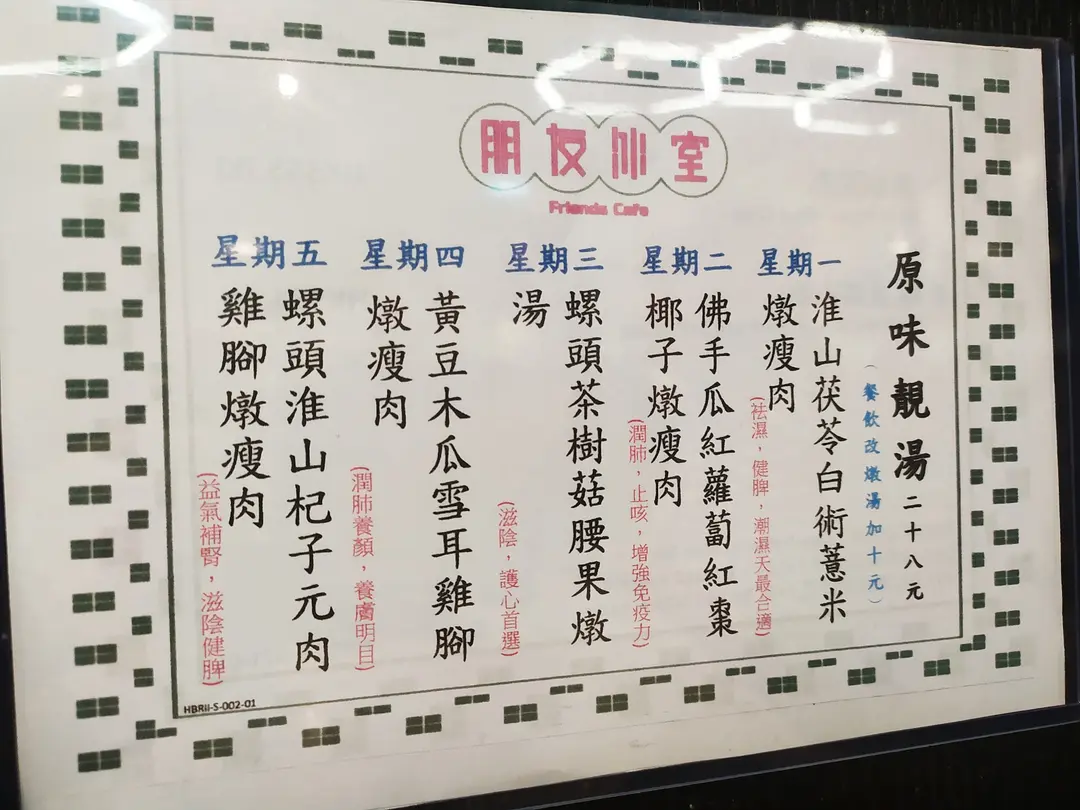 朋友冰室
Friends Cafe
原味靚湯二十八元
(餐飲改燉湯加十元)
星期一
淮山茯苓白術薏米
燉瘦肉
(袪濕，健脾，潮濕天最合適)
星期二
佛手瓜紅蘿蔔紅棗
椰子燉瘦肉
(潤肺，止咳，增強免疫力)
星期三
螺頭茶樹菇腰果燉
湯
(滋陰，護心首選)
星期四
黃豆木瓜雪耳雞腳
燉瘦肉
(潤肺養顏，養膚明目)
星期五
螺頭淮山杞子元肉
雞腳燉瘦肉
(益氣補腎，滋陰健脾)
HBRII-S-002-01